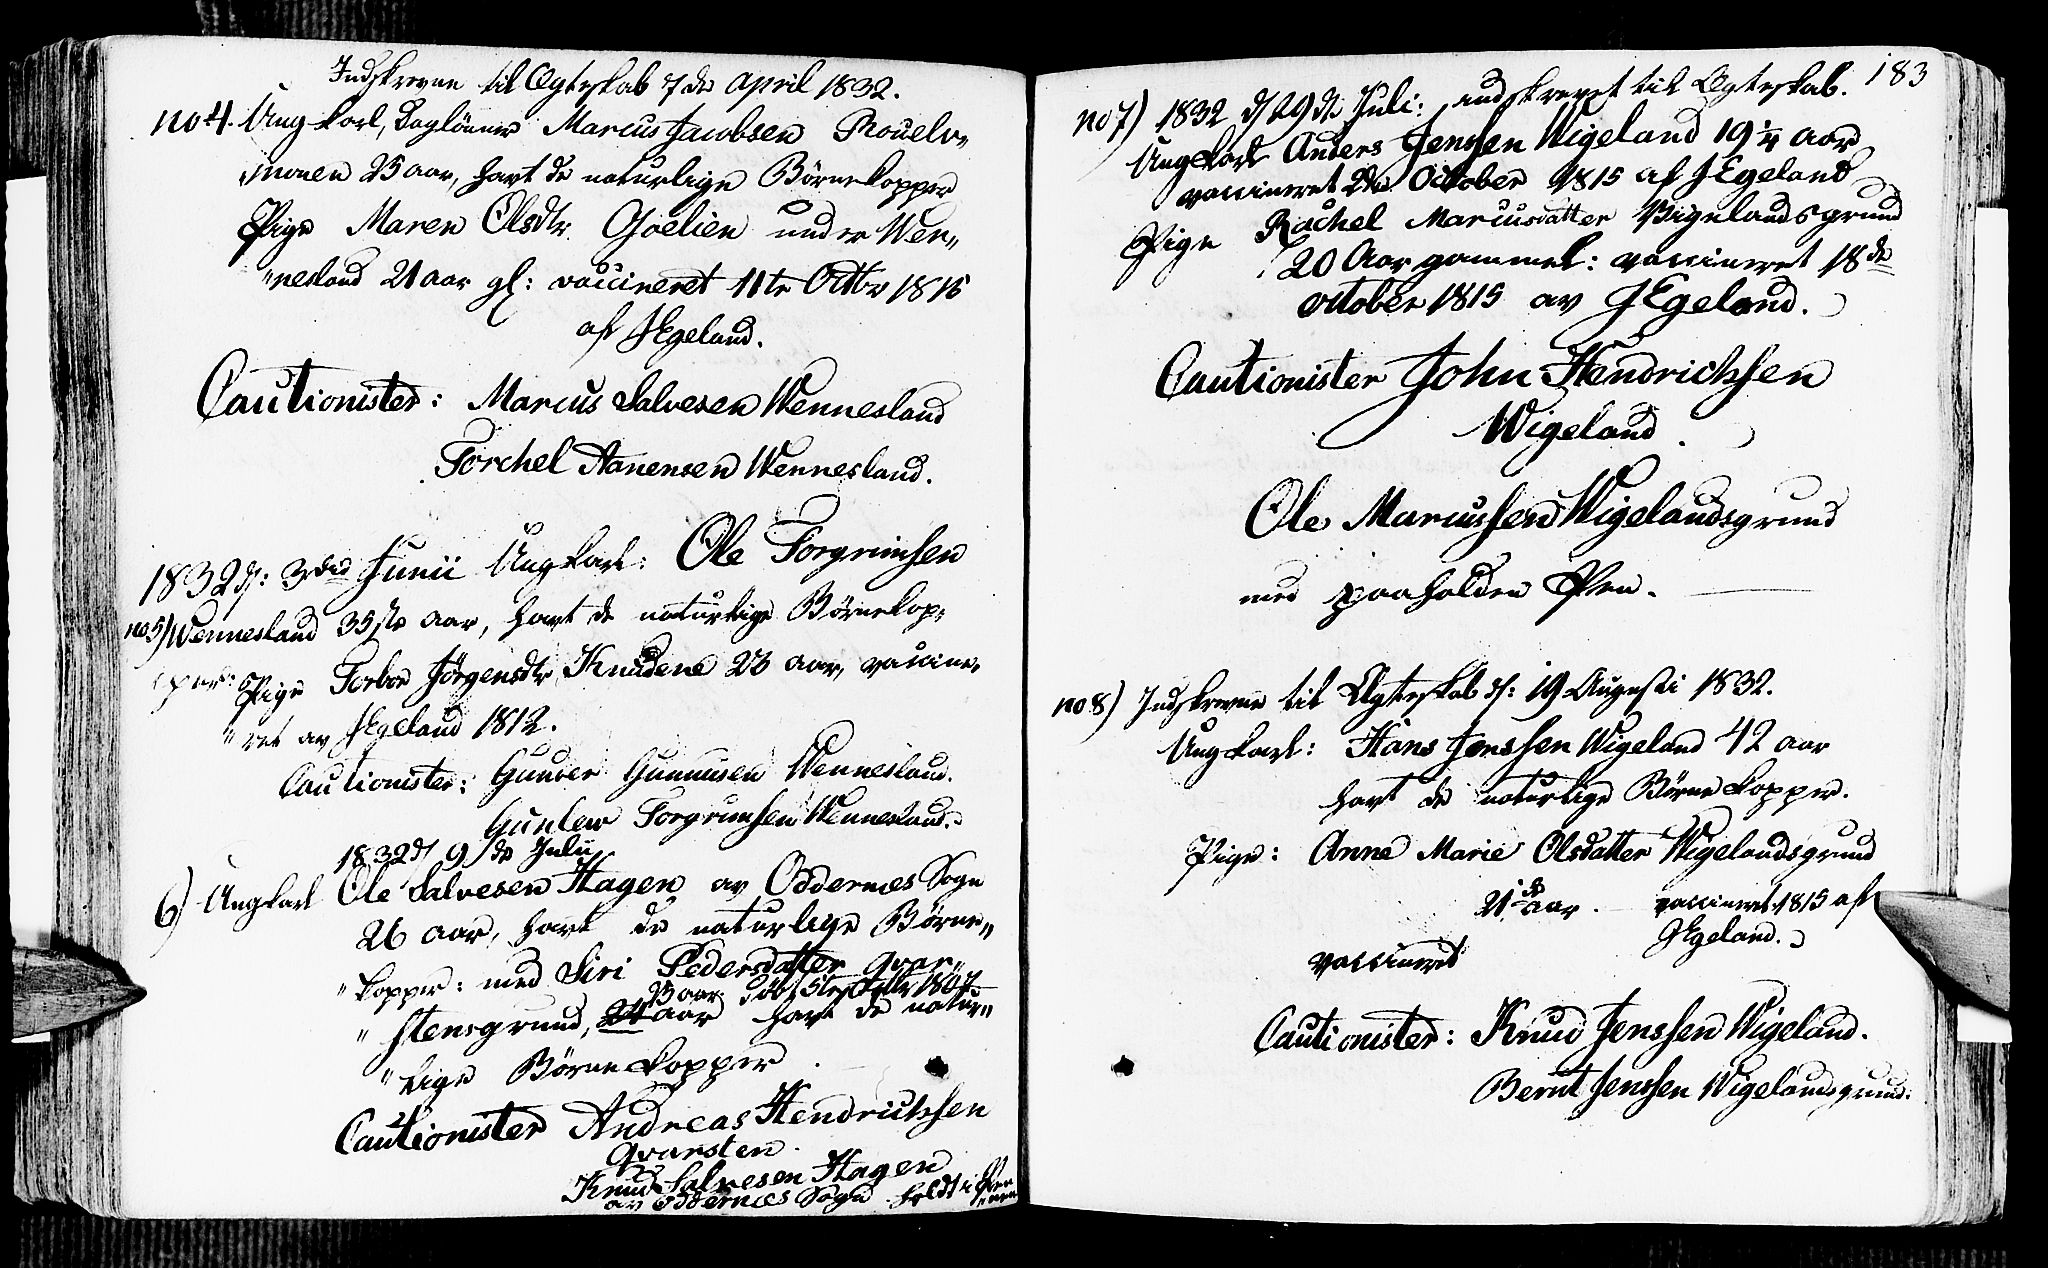 Indskrevne til Ægteskab 7de April 1832.
no 4. Ungkarl, Daglönner Marcus Jacobsen Mouelv-
monen 25 aar, havt de naturlige Börnekopper
Pige Maren Olsdtr Gjoelien under Wen„
„nesland 21 aar gl: vaccineret 11te Octbr 1815
af JEgeland.
Cautionister: Marcus Salvesen Wennesland
Torchel Aanensen Wennesland.
1832 d: 3die Junii Ungkarl: Ole Torgrimsen
no 5) Wennesland 35te aar, havt de naturlige Börnekop-
per: Pige Torbor Jörgensdtr Knudene 26 aar, vaccine-
„ret av JEgeland 1812.
Cautionister: Gunder Gunnusen Wennesland.
Gunlew Torgrimsen Wennesland.
1832 d 9de Julii
6) Ungkarl Ole Salvesen Hagen av Oddernæs Sogn
26 aar, havt de naturlige Börne„
„kopper: med Siri Pedersdatter Qvar„
25 aar döbt Septbr 1807
„stensgrund, aar havt de natur„
„lige Börnekopper
Cautionister Andreas Hendrichsen
Qvarsten.
Knud Salvesen Hagen
av Oddernæs Sogn holdt i Pen
183
no 7) 1832 d 29de Juli: indskrevet til Ægteskab.
Ungkarl Anders Jenssen Wigeland 19¼ aar
vaccineret 2den October 1815 af JEgeland
Pige Rachel Marcusdatter Vigelandsgrund
20 Aar gammel: vaccineret 18de
October 1815 av JEgeland.
Cautionister John Hendrichsen
Wigeland.
Ole Marcussen Wigelandsgrund
med paaholden Pen.
no 8) Indskrevne til Ægteskab d: 19 Augusti 1832.
Ungkarl: Hans Jenssen Wigeland 42 aar
havt de naturlige Börnekopper.
Pige: Anne Marie Olsdatter Wigelandsgrund
21de aar. vaccineret 1815 af
JEgeland.
vaccineret
Cautionister: Knud Jenssen Wigeland.
Bernt Jenssen Wigelandsgrund.